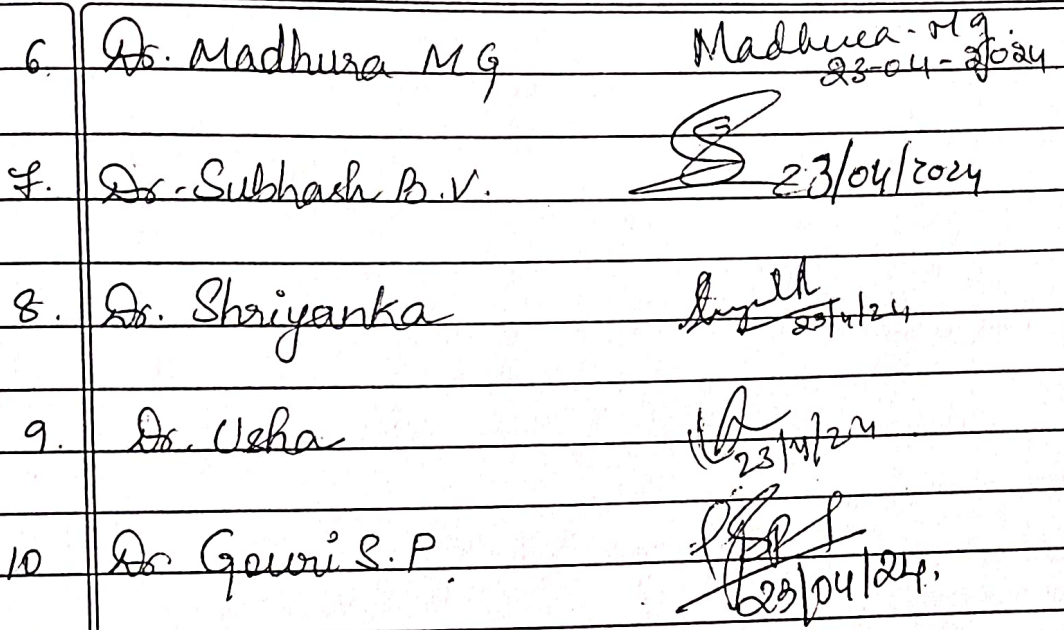 6. Dr. Madhura MG Madhura. M g.
23-04-2024
7. Dr. Subhash B.V. 23/04/2024
8. Dr. Shriyanka 23/4/24
9. Dr. Usha 23/4/24
10 Dr Gouri S.P. 23/04/24.